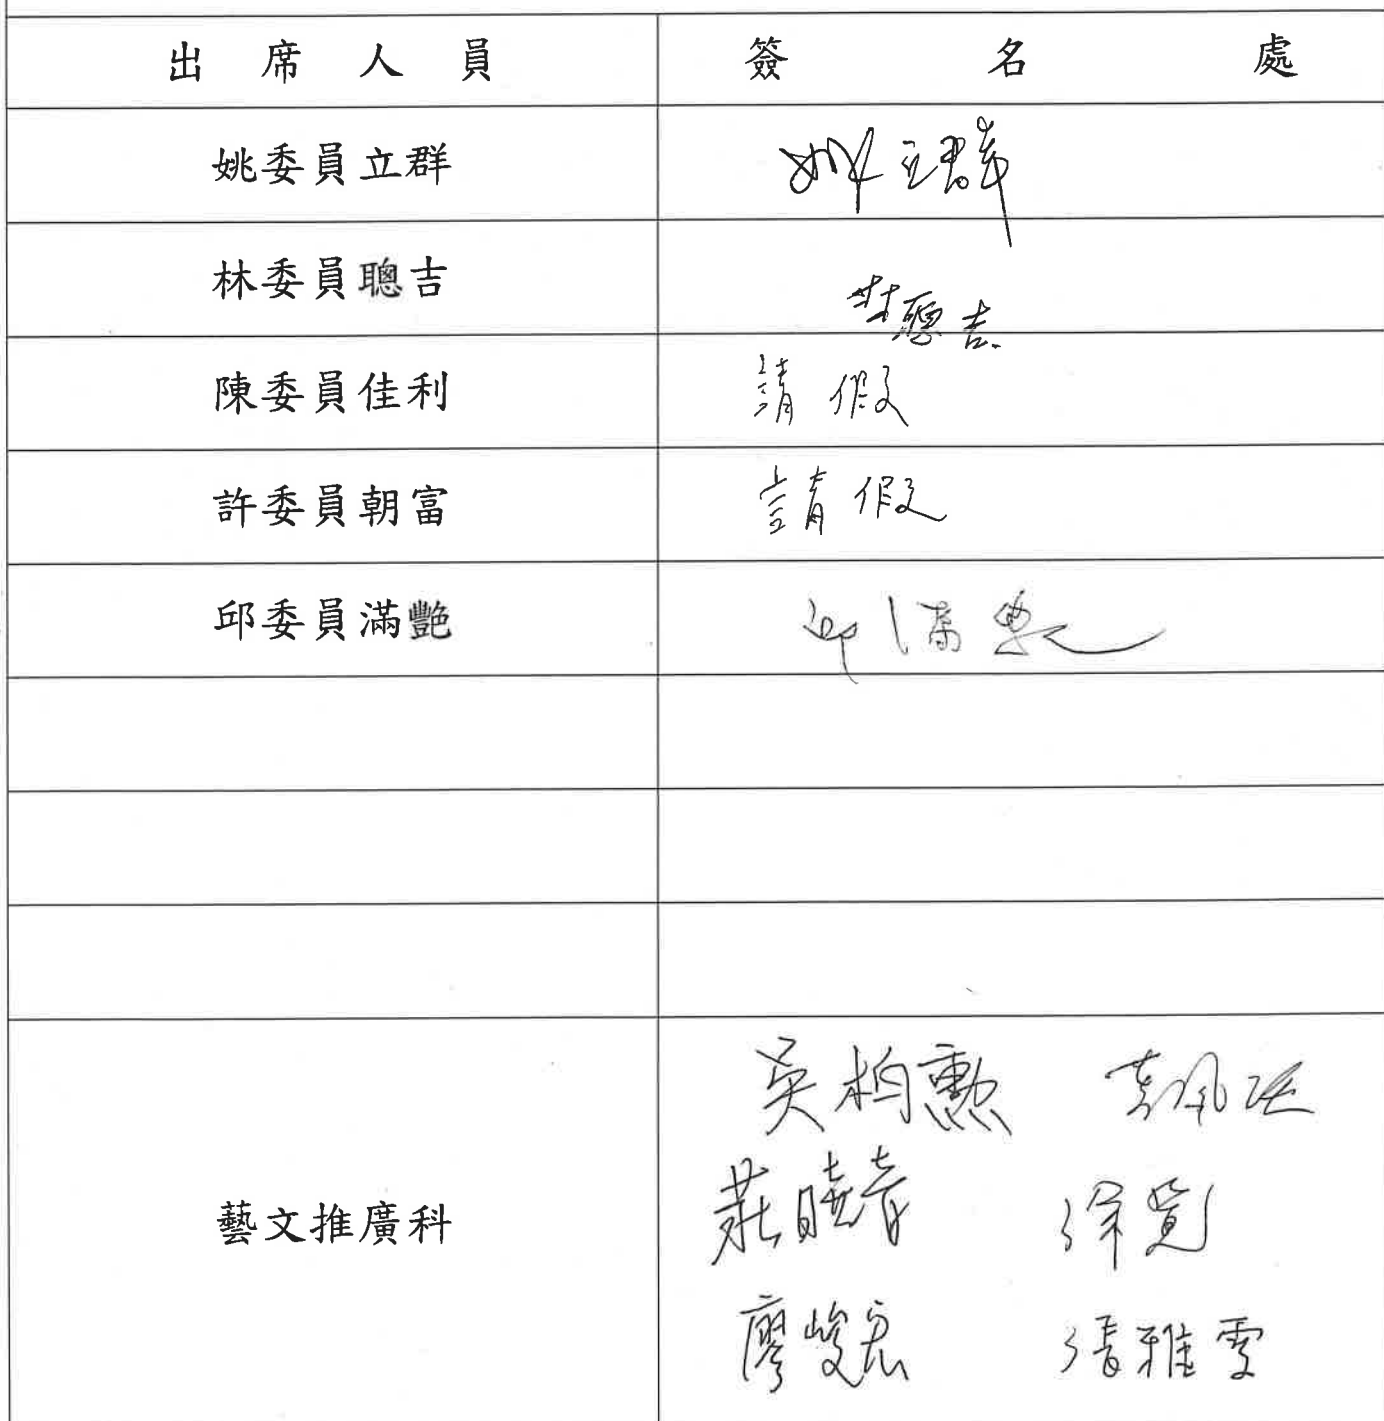 出席人員 簽名處
姚委員立群 姚立群
林委員聰吉 林聰吉
陳委員佳利 請假
許委員朝富 請假
邱委員滿艷 邱滿艷
藝文推廣科
吳柏勳
莊曉音 徐寬
廖峻宏 張雅雯